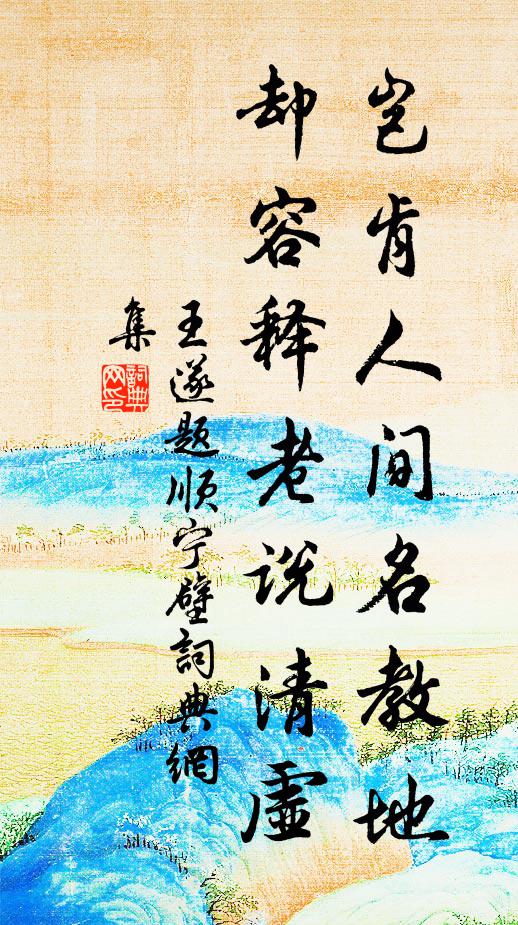 岂肯人间名教地
却容释老说清虚
王遂题顺宁壁詞典網
集
詞典
网印